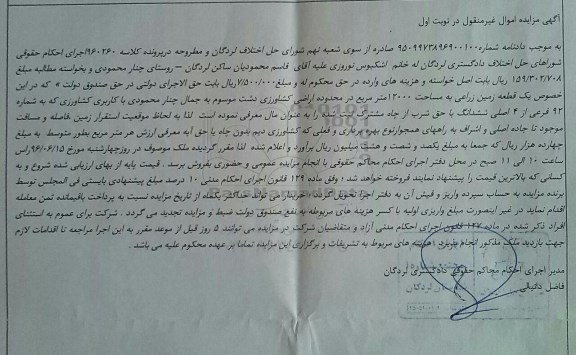 آگهی مزایده اموال غیرمنقول در نوبت اول
به موجب دادنامه شماره ۹۵۰۹۹۷۳۸۹۶۹۰۰۱۰۰ صادره از سوی شعبه نهم شورای حل اختلاف لردگان و مطروحه درپرونده کلاسه ۹۶۰۲۶۰اجرای احکام حقوقی
شوراهای حل اختلاف دادگستری لردگان له خانم اشکبوس نوروزی علیه آقای قاسم محمودیان ساکن لردگان – روستای چنار محمودی و بخواسته مطالبه مبلغ
۱۵۹/۳۰۲/۷۰۸ ریال بابت اصل خواسته و هزینه های وارده در حق محکوم له و مبلغ۷/۵۰۰/۰۰۰ریال بابت حق الاجرای دولتی در حق صندوق دولت » که در این
خصوص یک قطعه زمین زراعی به مساحت ۱۲۰۰۰متر مربع در محدوده اراضی کشاورزی دشت موسوم به جمال چنار محمودی با کاربری کشاورزی که به شماره
۹۲ فرعی از ۴ اصلی ششدانگ با حق شرب از چاه را به عنوان مال معرفی نموده است لذا به لحاظ موقعیت استقرار زمین ،فاصله و مسافت
موجود تا جاده اصلی و اشراف به راههای همجوارنوع بهره برداری و فعلی که کشاورزی دیم بدون چاه یا حق آبه معرفی ارزش هر متر مربع بطور متوسط به مبلغ
چهارده هزار ریال که جمعا به مبلغ یکصد و شصت و هشت میلیون ریال برآورد و اعلام شده لذا مقرر گردیده ملک موصوف در روزچهارشنبه مورخ ۹۶/۰۶/۱۵راس
ساعت ۱۰ الی ۱۱ صبح در محل دفتر اجرای احکام محاکم حقوقی با انجام مزایده عمومی و حضوری بفروش برسد . قیمت پایه از بهای ارزیابی شده شروع و به
کسانی که بالاترین قیمت را پیشنهاد نمایند فروخته خواهد شد ؛ وفق ماده ۱۲۹ قانون اجرای احکام مدنی ۱۰ درصد مبلغ پیشنهادی بایستی فی المجلس توسط
برنده مزایده به حساب سپرده واریز و فیش آن به دفتر اجرا تحویل گردد . خریدار می تواند حداکثر یکماه از تاریخ مزایده نسبت به پرداخت باقیمانده ثمن معامله
اقدام نماید در غیر اینصورت مبلغ واریزی اولیه با کسر هزینه های مربوطه به نفع صندوق دولت ضبط و مزایده تجدید می گردد . شرکت برای عموم به استثنای
افراد ذکر شده در ماده ۱۲۷ قانون اجرای احکام مدنی آزاد و متقاضیان شرکت در مزایده می توانند ۵ روز قبل از موعد مقرر به این اجرا مراجعه تا اقدامات لازم
جهت بازدید ملک مذکور انجام پذیرد ؛ هزینه های مربوط به تشریفات و برگزاری این مزایده تماما بر عهده محکوم علیه می باشد .
مدیر اجرای احکام محاکم حقوقی دادگستری لردگان
فاضل دانیالی